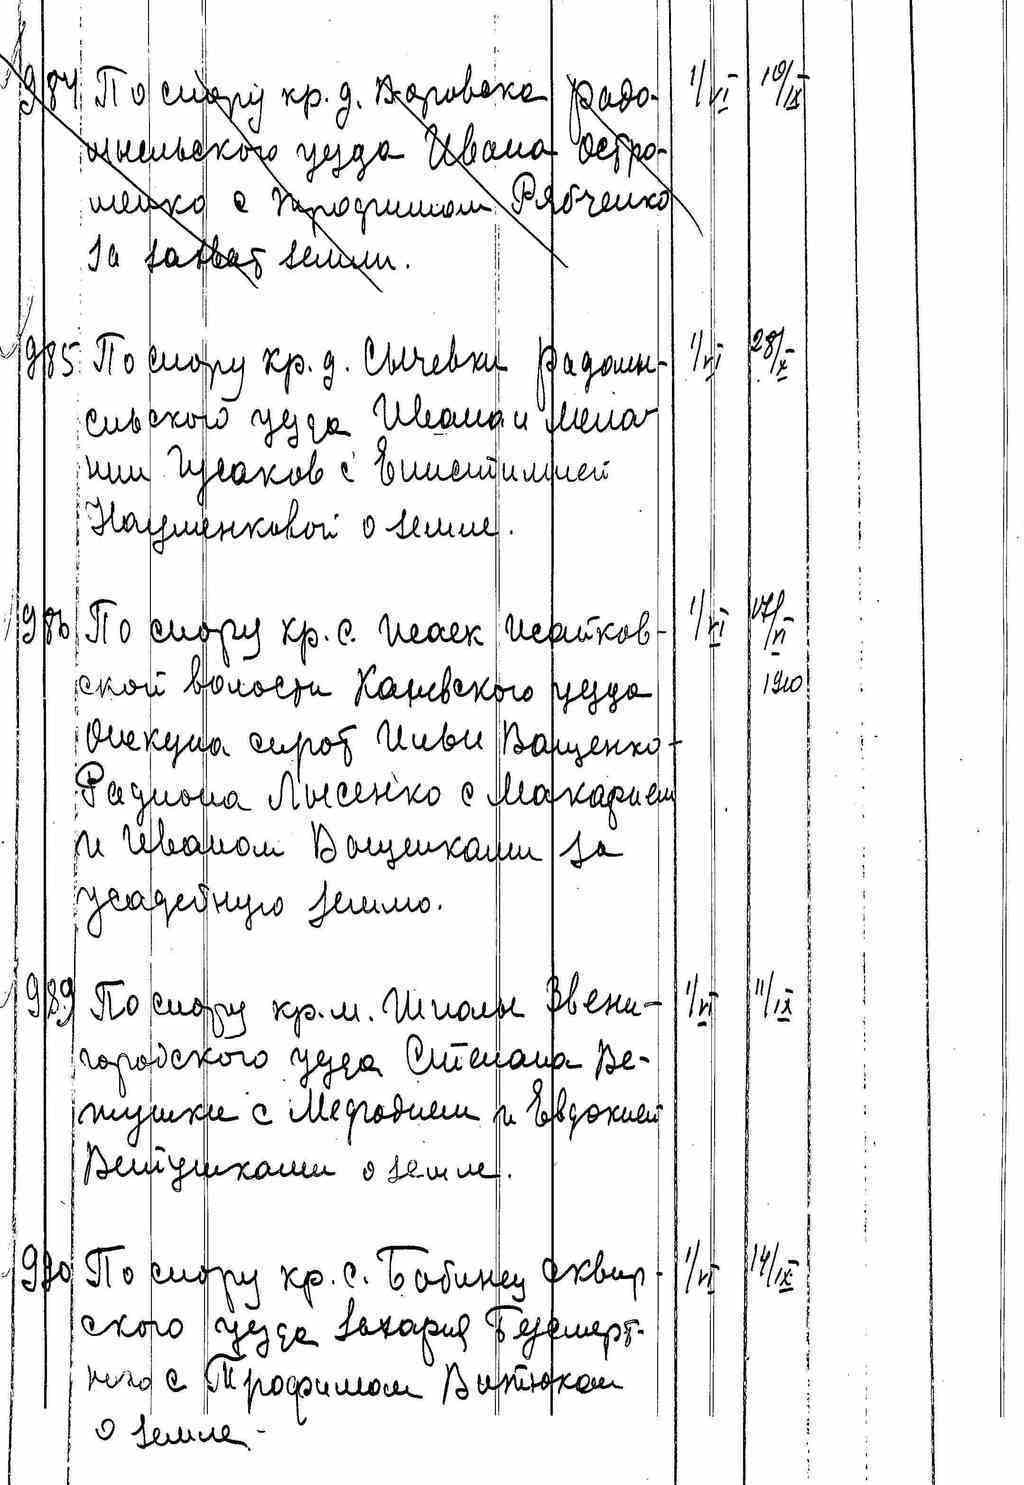 984 По спору кр. д. Воровска радо- 1/VI 10/IX
мысльского уезда Ивана Остро-
шенко с Трофимом Рябченко
за захват земли.
985 По спору кр. д. Сычевки радомы- 1/VI 28/X
сльского уезда Ивана и Мела-
нии Гусаков с Епистимией
Науменковой о земле.
986 По спору кр. с. Исаек Исайков- 1/VI 17/VI
ской волости Каневского уезда 1910
Опекуна сирот Ильи Ващенко-
Радиона Лысенко с Макарием
и Иваном Ващенками за
усадебную землю.
989 По спору кр. м. Шполы Звени- 1/VI 11/IX
городского уезда Степана Ве-
тушки с Мефодием и Евдокией
Ветушками о земле.
990 По спору кр. с. Бабинец сквир- 1/VI 14/IX
ского уезда Захария Безсмерт-
ного с Трофимом Витюком
о земле.